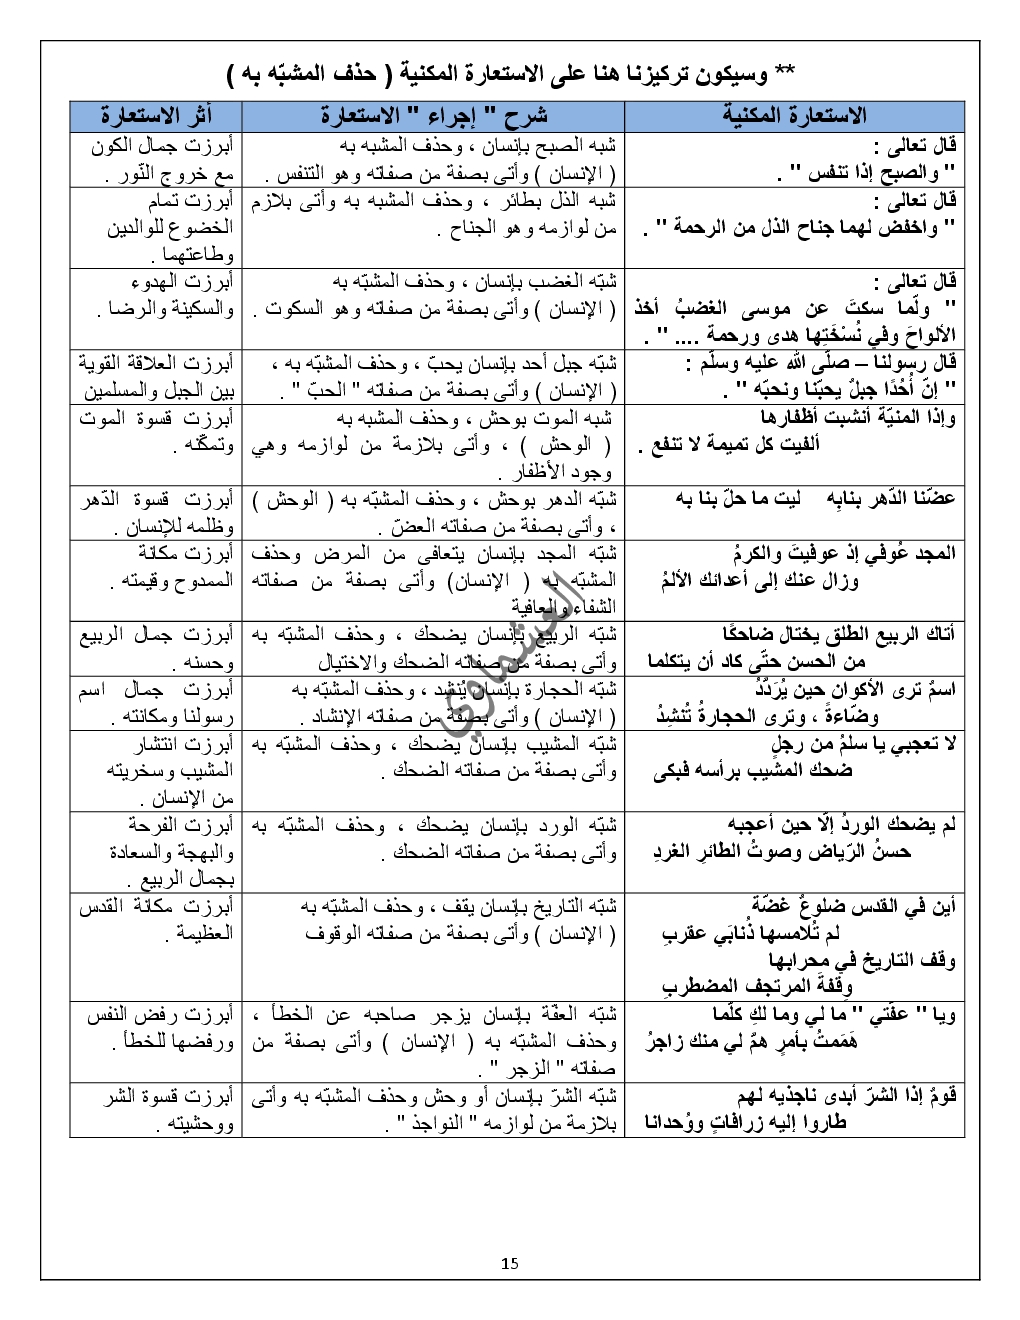 ** وسيكون تركيزنا هنا على الاستعارة المكنية ( حذف المشبّه به )
الاستعارة المكنية
شرح " إجراء " الاستعارة
أثر الاستعارة
قال تعالى :
" والصبح إذا تنفس " .
شبه الصبح بإنسان ، وحذف المشبه به
( الإنسان ) وأتى بصفة من صفاته وهو التنفس .
أبرزت جمال الكون
مع خروج النّور .
قال تعالى :
" واخفض لهما جناح الذل من الرحمة " .
شبه الذل بطائر ، وحذف المشبه به وأتى بلازم
من لوازمه وهو الجناح .
أبرزت تمام
الخضوع للوالدين
وطاعتهما .
قال تعالى :
" ولّما سكتَ عن موسى الغضبُ أخذ
الألواحَ وفي نُسْخَتِها هدى ورحمة .... " .
شبّه الغضب بإنسان ، وحذف المشبّه به
( الإنسان ) وأتى بصفة من صفاته وهو السكوت .
أبرزت الهدوء
والسكينة والرضا .
قال رسولنا – صلّى الله عليه وسلّم :
" إنّ أُحُدًا جبلٌ يحبّنا ونحبّه " .
شبّه جبل أحد بإنسان يحبّ ، وحذف المشبّه به ،
( الإنسان ) وأتى بصفة من صفاته " الحبّ " .
أبرزت العلاقة القوية
بين الجبل والمسلمين
وإذا المنيّة أنشبت أظفارها
ألفيت كل تميمة لا تنفع .
شبه الموت بوحش ، وحذف المشبه به
( الوحش ) ، وأتى بلازمة من لوازمه وهي
وجود الأظفار .
أبرزت قسوة الموت
وتمكّنه .
عضّنا الدّهر بنابِه    ليت ما حلّ بنا به
شبّه الدهر بوحش ، وحذف المشبّه به ( الوحش )
، وأتى بصفة من صفاته العضّ .
أبرزت قسوة الدّهر
وظلمه للإنسان .
المجد عُوفي إذ عوفيتَ والكرمُ
وزال عنك إلى أعدائك الألمُ
شبّه المجد بإنسان يتعافى من المرض وحذف
المشبّه به ( الإنسان) وأتى بصفة من صفاته
الشفاء والعافية
أبرزت مكانة
الممدوح وقيمته .
أتاك الربيع الطلق يختال ضاحكًا
من الحسن حتّى كاد أن يتكلما
شبّه الربيع بإنسان يضحك ، وحذف المشبّه به
وأتى بصفة من صفاته الضحك والاختيال
أبرزت جمال الربيع
وحسنه .
اسمٌ ترى الأكوان حين يُرَدَّدُ
وضّاءةً ، وترى الحجارةُ تُنشِدُ
شبّه الحجارة بإنسان يُنشد ، وحذف المشبّه به
( الإنسان ) وأتى بصفة من صفاته الإنشاد .
أبرزت جمال اسم
رسولنا ومكانته .
لا تعجبي يا سلمُ من رجلٍ
ضحك المشيب برأسه فبكى
شبّه المشيب بإنسان يضحك ، وحذف المشبّه به
وأتى بصفة من صفاته الضحك .
أبرزت انتشار
المشيب وسخريته
من الإنسان .
لم يضحك الوردُ إلّا حين أعجبه
حسنُ الرّياض وصوتُ الطائرِ الغردِ
شبّه الورد بإنسان يضحك ، وحذف المشبّه به
وأتى بصفة من صفاته الضحك .
أبرزت الفرحة
والبهجة والسعادة
بجمال الربيع .
أين في القدس ضلوعٌ غضّة
لم تُلامسها ذُنابَي عقربِ
وقف التاريخ في محرابها
وِقفةَ المرتجف المضطربِ
شبّه التاريخ بإنسان يقف ، وحذف المشبّه به
( الإنسان ) وأتى بصفة من صفاته الوقوف
أبرزت مكانة القدس
العظيمة .
ويا " عفّتي " ما لي وما لكِ كلّما
هَمَمتُ بأمرٍ همّ لي منك زاجرُ
شبّه العفّة بإنسان يزجر صاحبه عن الخطأ ،
وحذف المشبّه به ( الإنسان ) وأتى بصفة من
صفاته " الزجر " .
أبرزت رفض النفس
ورفضها للخطأ .
قومٌ إذا الشرّ أبدى ناجذيه لهم
طاروا إليه زرافاتٍ ووُحدانا
شبّه الشرّ بإنسان أو وحش وحذف المشبّه به وأتى
بلازمة من لوازمه " النواجذ " .
أبرزت قسوة الشر
ووحشيته .
العشماوي
15